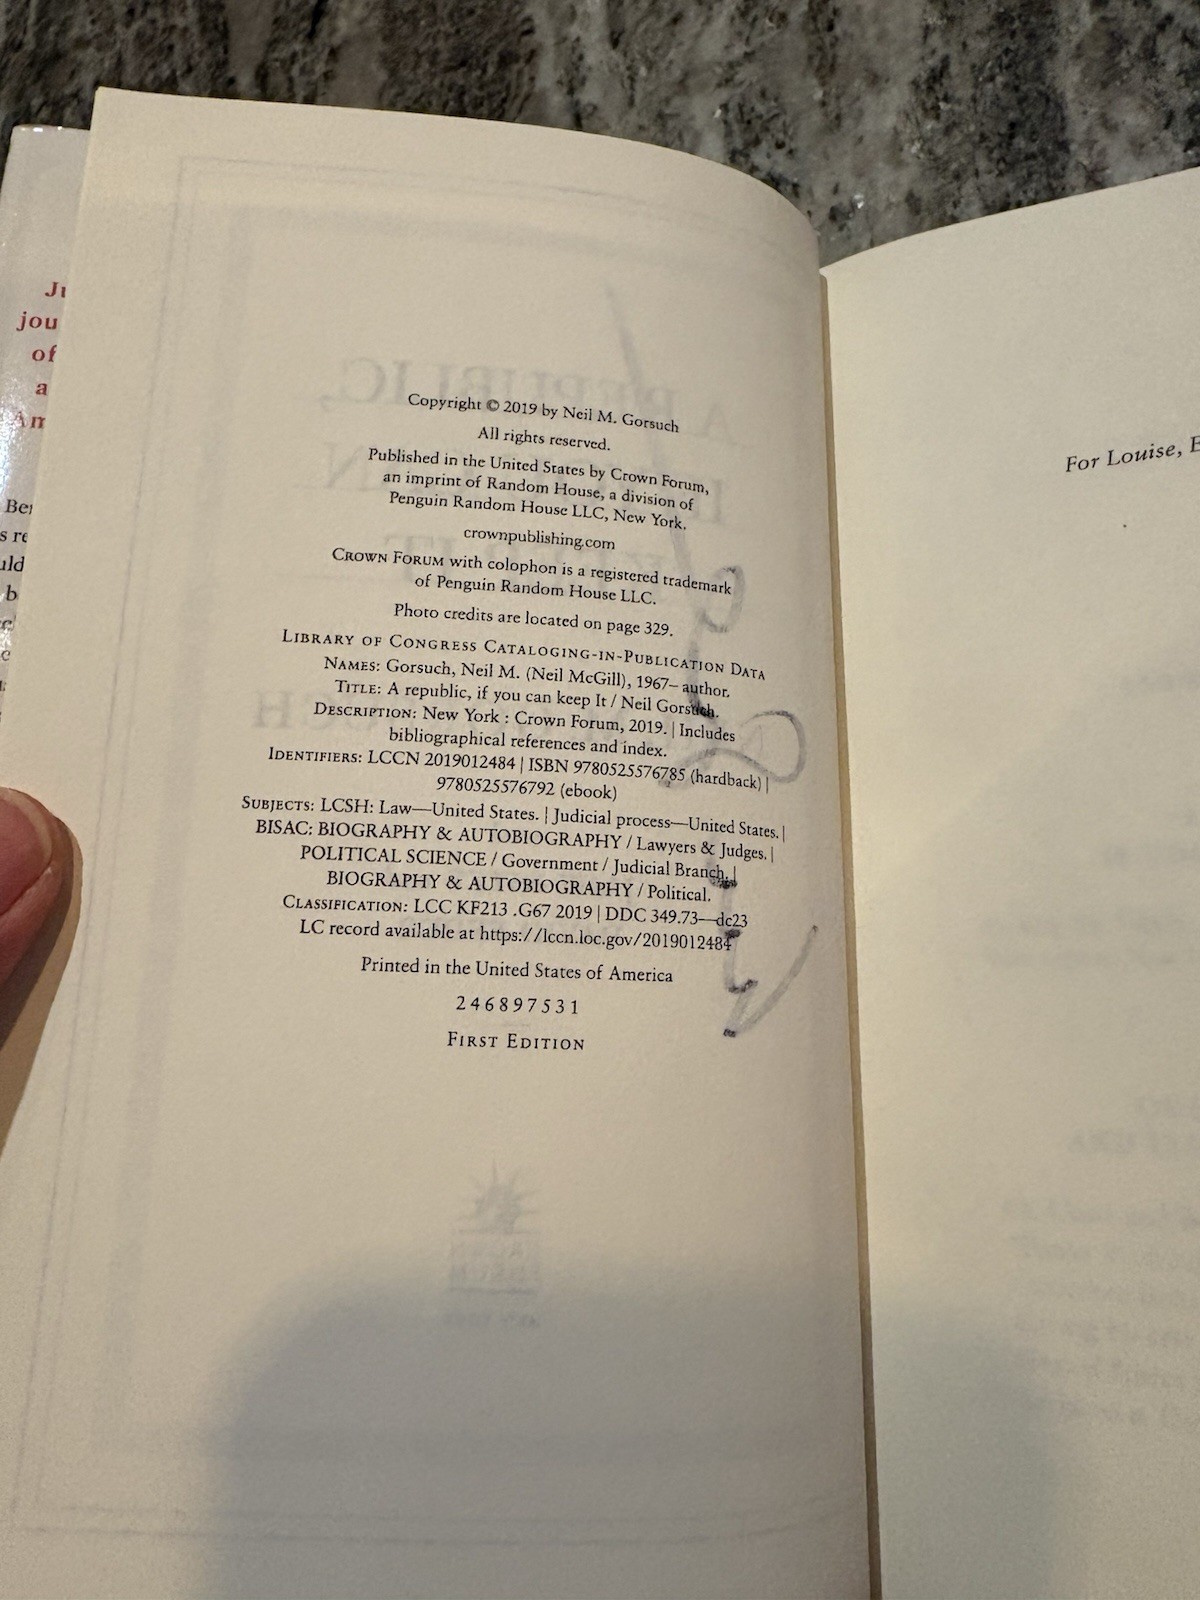 Copyright © 2019 by Neil M. Gorsuch
All rights reserved.
Published in the United States by Crown Forum,
an imprint of Random House, a division of
Penguin Random House LLC, New York.
crownpublishing.com
CROWN FORUM with colophon is a registered trademark
of Penguin Random House LLC.
Photo credits are located on page 329.
LIBRARY OF CONGRESS CATALOGING-IN-PUBLICATION DATA
NAMES: Gorsuch, Neil M. (Neil McGill), 1967– author.
TITLE: A republic, if you can keep It / Neil Gorsuch.
DESCRIPTION: New York : Crown Forum, 2019. | Includes
bibliographical references and index.
IDENTIFIERS: LCCN 2019012484 | ISBN 9780525576785 (hardback) |
9780525576792 (ebook)
SUBJECTS: LCSH: Law—United States. | Judicial process—United States. |
BISAC: BIOGRAPHY & AUTOBIOGRAPHY / Lawyers & Judges. |
POLITICAL SCIENCE / Government / Judicial Branch. |
BIOGRAPHY & AUTOBIOGRAPHY / Political.
CLASSIFICATION: LCC KF213 .G67 2019 | DDC 349.73—dc23
LC record available at https://lccn.loc.gov/2019012484
Printed in the United States of America
2 4 6 8 9 7 5 3 1
FIRST EDITION
For Louise,